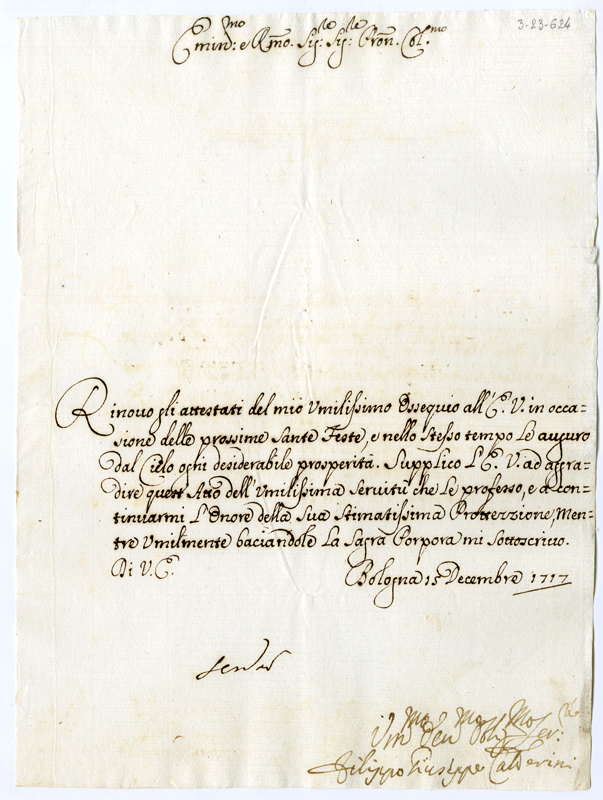 3-23-624
Emin:mo e Rmo. Sig:re Sig:re Pron. Col.mo
Rinouo gli attestati del mio Vmilissimo Ossequio all'E. V. in occa-
sione delle prossime Sante Feste, e nello Stesso tempo Le auguro
dal Cielo ogni desiderabile prosperità. Supplico L'E. V. ad aggra-
dire quest Atto dell'Vmilissima Seruitù che Le professo, e a con-
tinuarmi L'Onore della Sua Stimatissima Prottezzione, Men-
tre Vmilmente baciandole La Sagra Porpora mi Sottoscriuo.
Di V. E. Bologna 15 Decembre 1717
Vmo Deuo Oblmo Ser:
Filippo Giuseppe Calderini